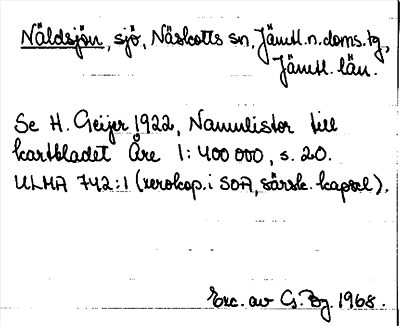 Näldsjön, sjö, Näskotts sn, Jämtl.n.doms.tg,
Jämtl. län.
Se H. Geijer 1922, Namnlistor till
kartbladet Åre 1:400 000, s. 20.
ULMA 742:1 (xerokop. i SOA, särsk. kapsel).
Exc. av G. Bg. 1968.